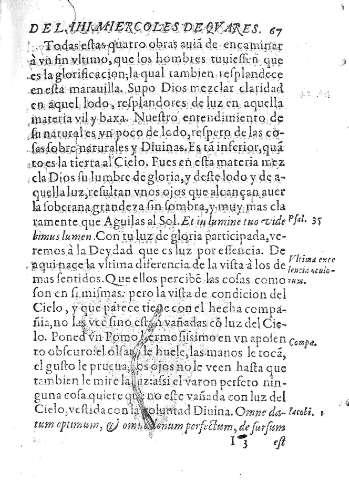 DEL IIII. MIERCOLES DE QVARES. 67
Todas estas quatro obras auiã de encaminar
à vn fin vltimo, que los hombres tuuiessen que
es la glorificacion, la qual tambien resplandece
en esta marauilla. Supo Dios mezclar claridad
en aquel lodo, resplandores de luz en aquella
materia vil y baxa. Nuestro entendimiento de
su natural es vn poco de lodo, respeto de las co-
sas sobrenaturales y Diuinas. Es tã inferior, quã
to es la tierra al Cielo. Pues en esta materia mez
cla Dios su lumbre de gloria, y deste lodo y de a-
quella luz, resultan vnos ojos que alcançan auer
la soberana grandeza sin sombra, y muy mas cla
ramente que Aguilas al Sol. Et in lumine tuo vide Psal. 35
bimus lumen. Con tu luz de gloria participada, ve-
remos à la Deydad que es luz por essencia. De
aqui nace la vltima diferencia de la vista à los de Vltima exce
mas sentidos. Que ellos percibẽ las cosas como lencia
son en si mismas: pero la vista de condicion del
Cielo, y que parece tiene con el hecha compa-
ñia, no las vee sino estan vañadas cõ luz del Cie-
lo. Poned vn Pomo hermosissimo en vn aposen Compa.
to obscuro: el olfato le huele, las manos le tocã,
el gusto le prueua, los ojos no le veen hasta que
tambien le mire la luz: assi el varon perfeto nin-
guna cosa quiere que no este vañada con luz del
Cielo, vestida con la voluntad Diuina. Omne da- Iacobi. 1
tum optimum, & omne donum perfectum, de sursum
I 3 est